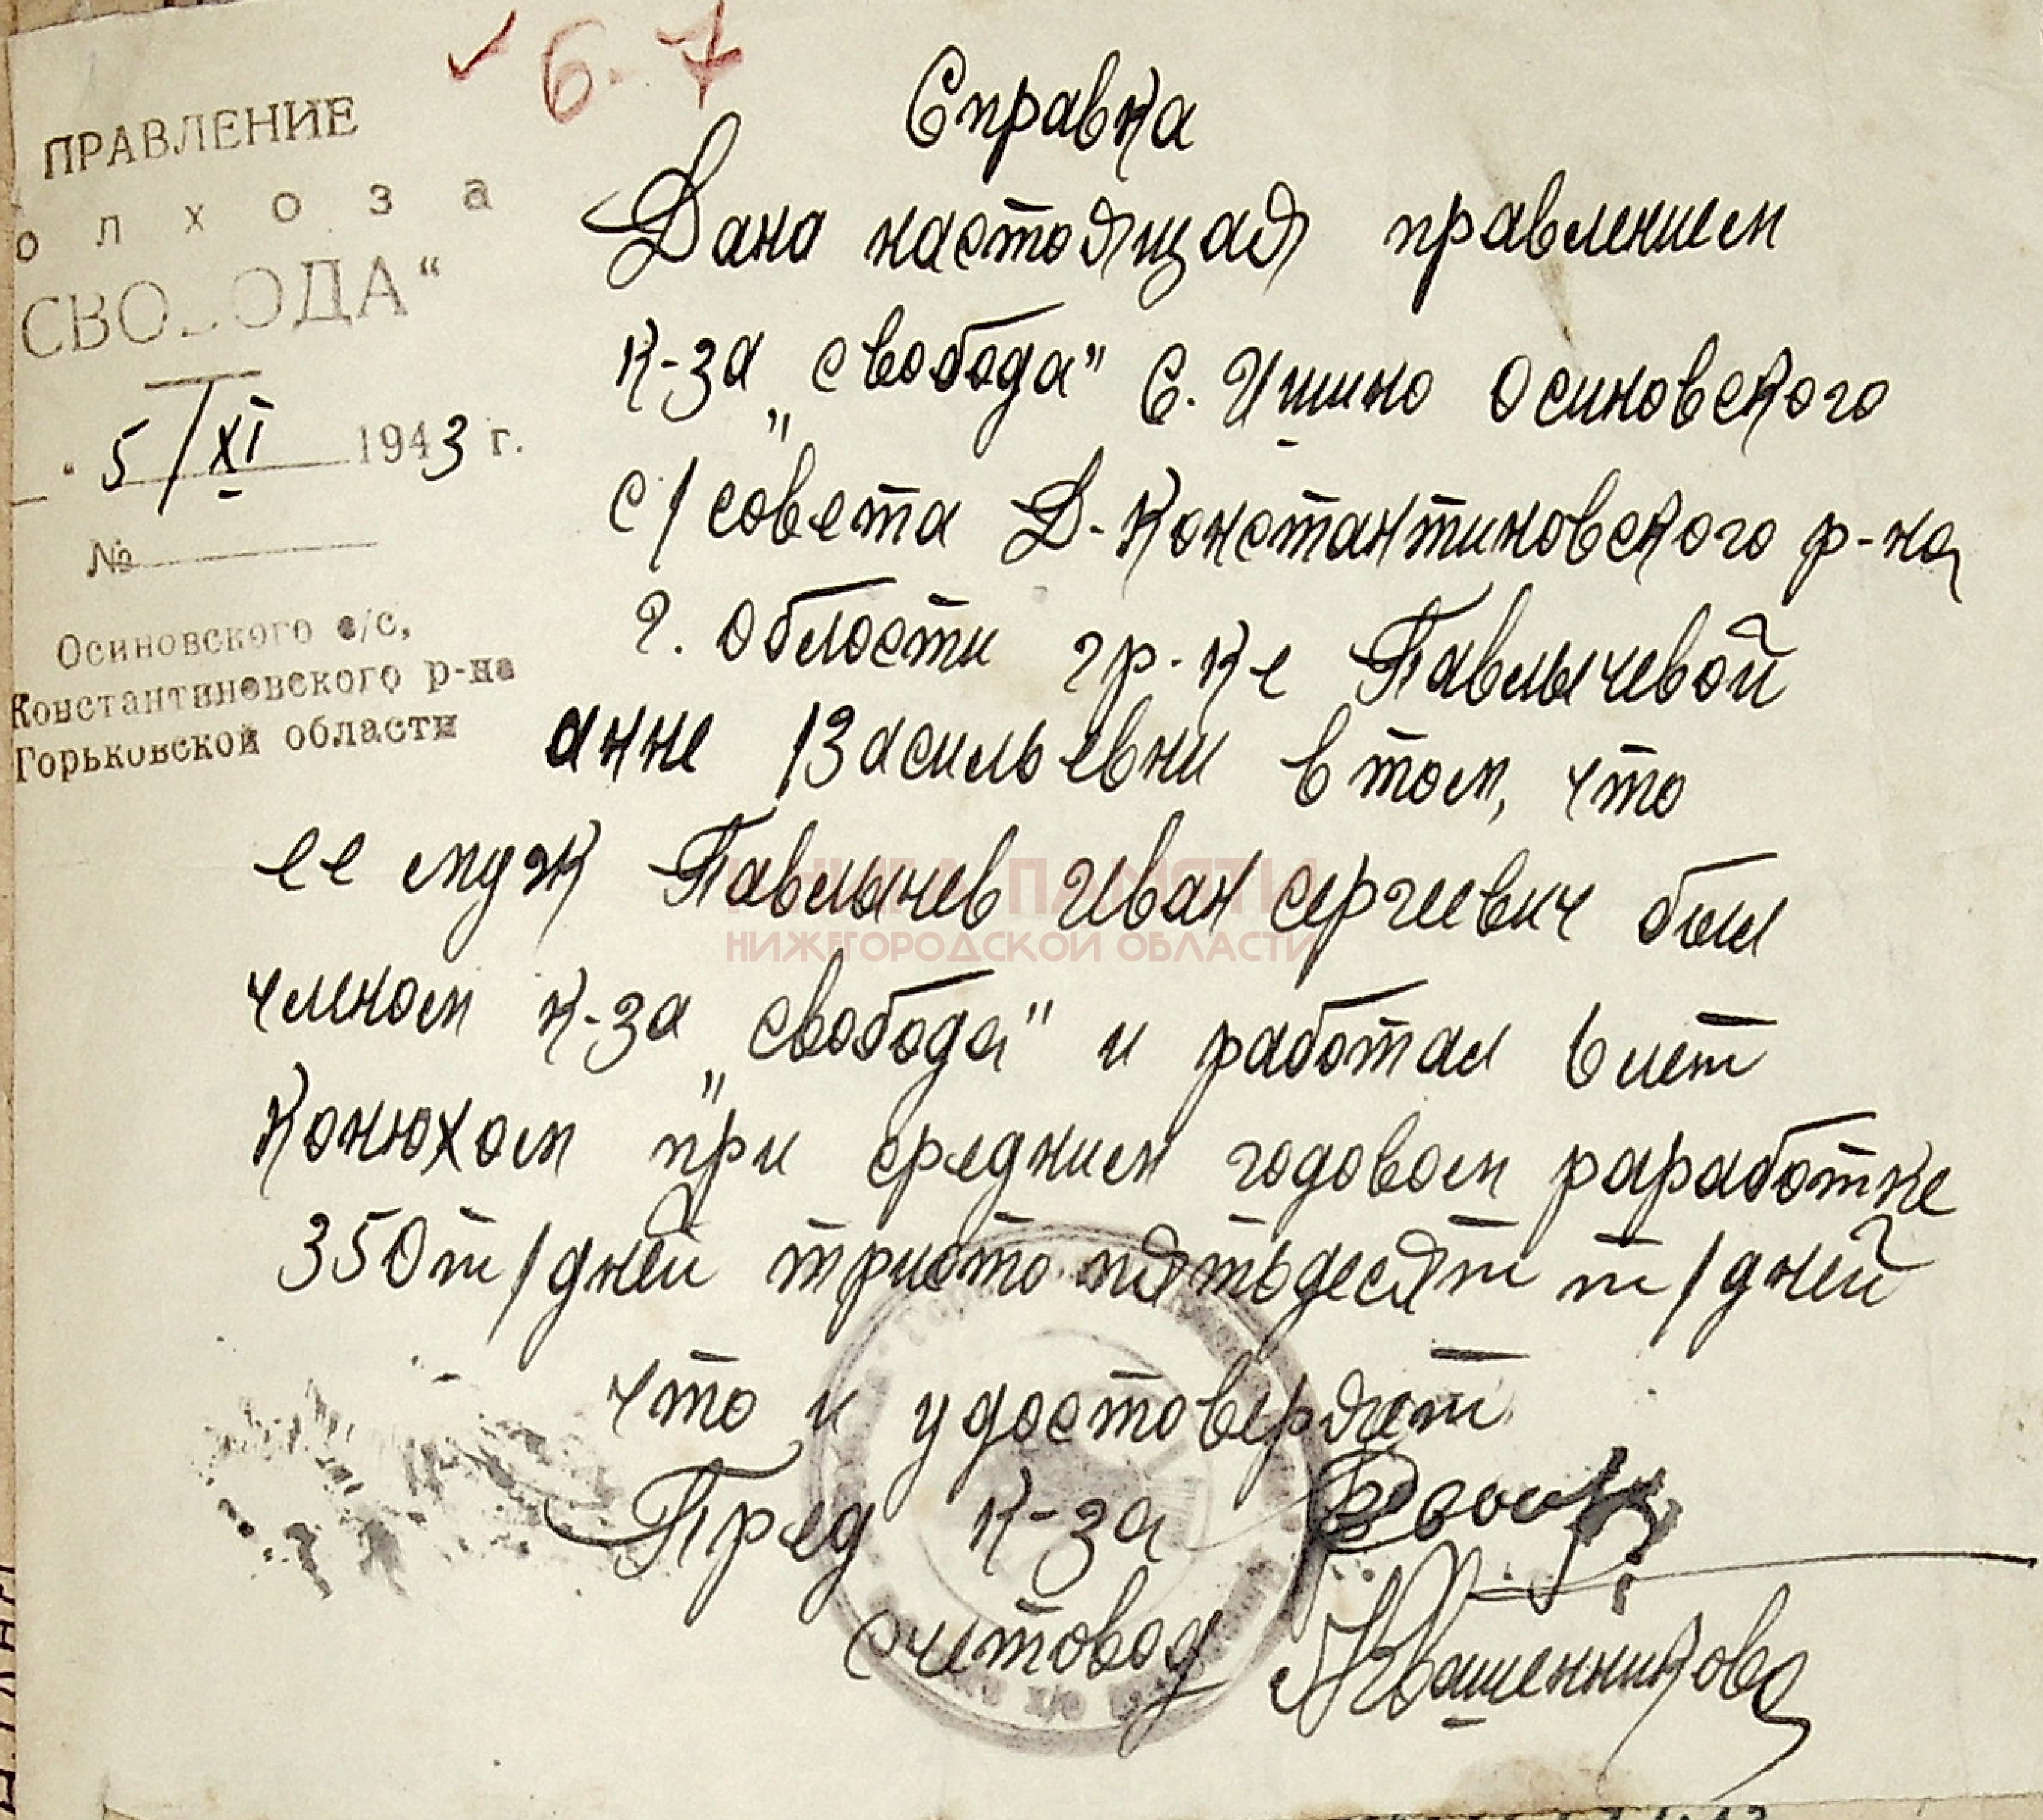 6-7
ПРАВЛЕНИЕ
олхоза
СВО ОДА“
" 5/XI 1943 г.
№
Осиновского с/с,
Константиновского р-на
Горьковской области
Справка
Дана настоящая правлением
к-за „свобода" с. Ишино осиновского
с/совета Д-Константиновского р-на
г. области гр-ке Павлычевой
анне Васильевни в том, что
ее муж Павлычев Иван сергеевич был
членом к-за „свобода" и работал 6 лет
конюхом при среднием годовом раработке
350 т/дней тристо пятьдесят т/дней
что и удостоверяет
Пред к-за
счетовод Квашенникова
КНИГА ПАМЯТИ
НИЖЕГОРОДСКОЙ ОБЛАСТИ